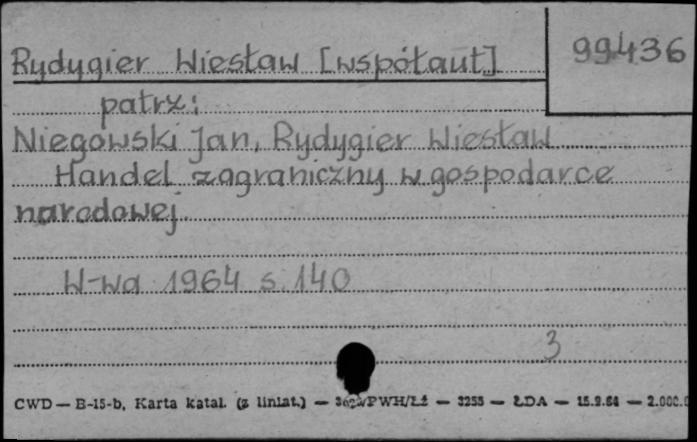 Rydygier Wiesław [współaut]
99436
patrz:
Niegowski Jan, Rydygier Wiesław
Handel zagraniczny w gospodarce
narodowej.
W-wa 1964 s. 140
3
CWD — B-15-b, Karta katal. (z liniat.) — PWH/Łź — 3255 — ŁDA — 15.9.61 — 2.000.0